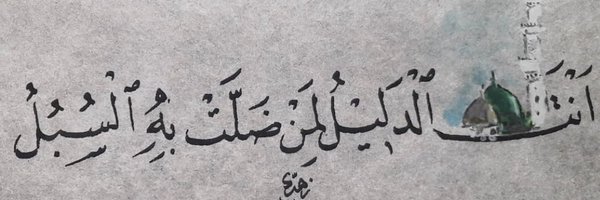 أَنْتَ الدَّلِيْلُ لِمَنْ ضَلَّتْ بِهِ السُبُلُ